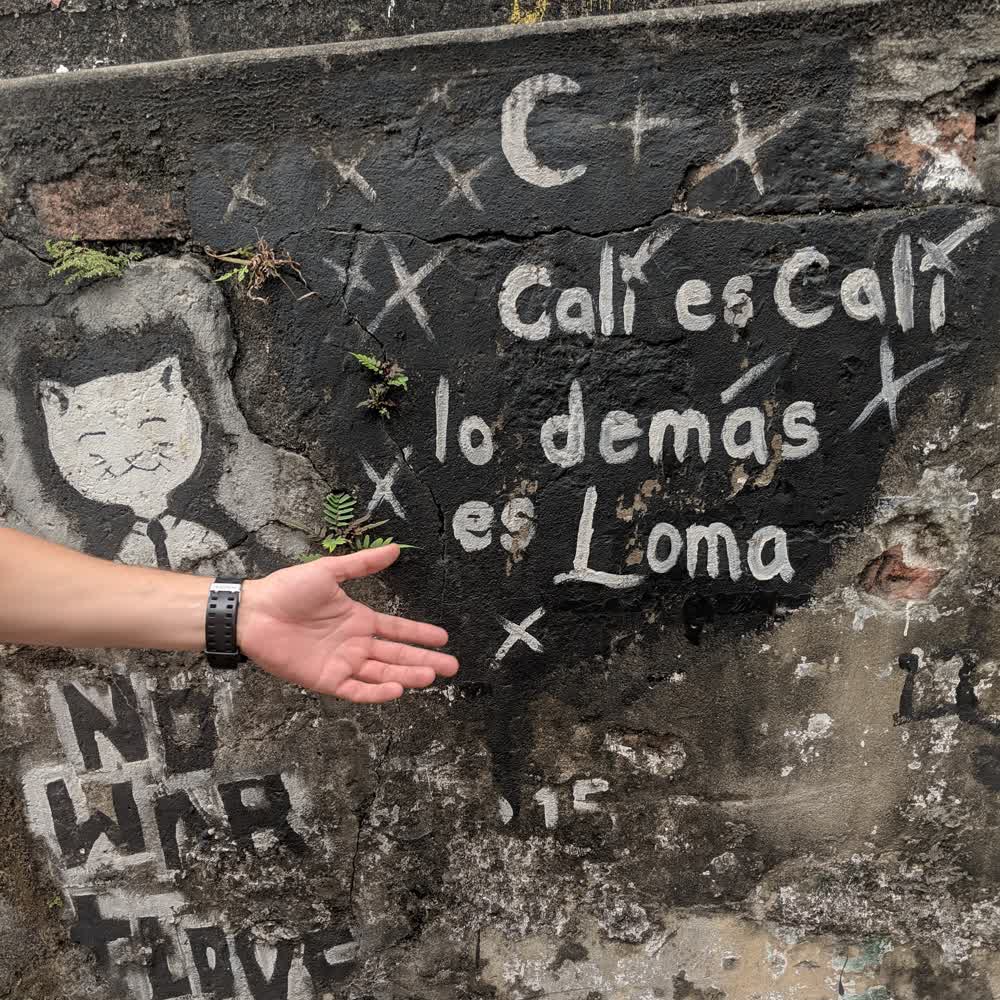 Cali es Cali
lo demás
es Loma
15
NO
WAR
LOVE